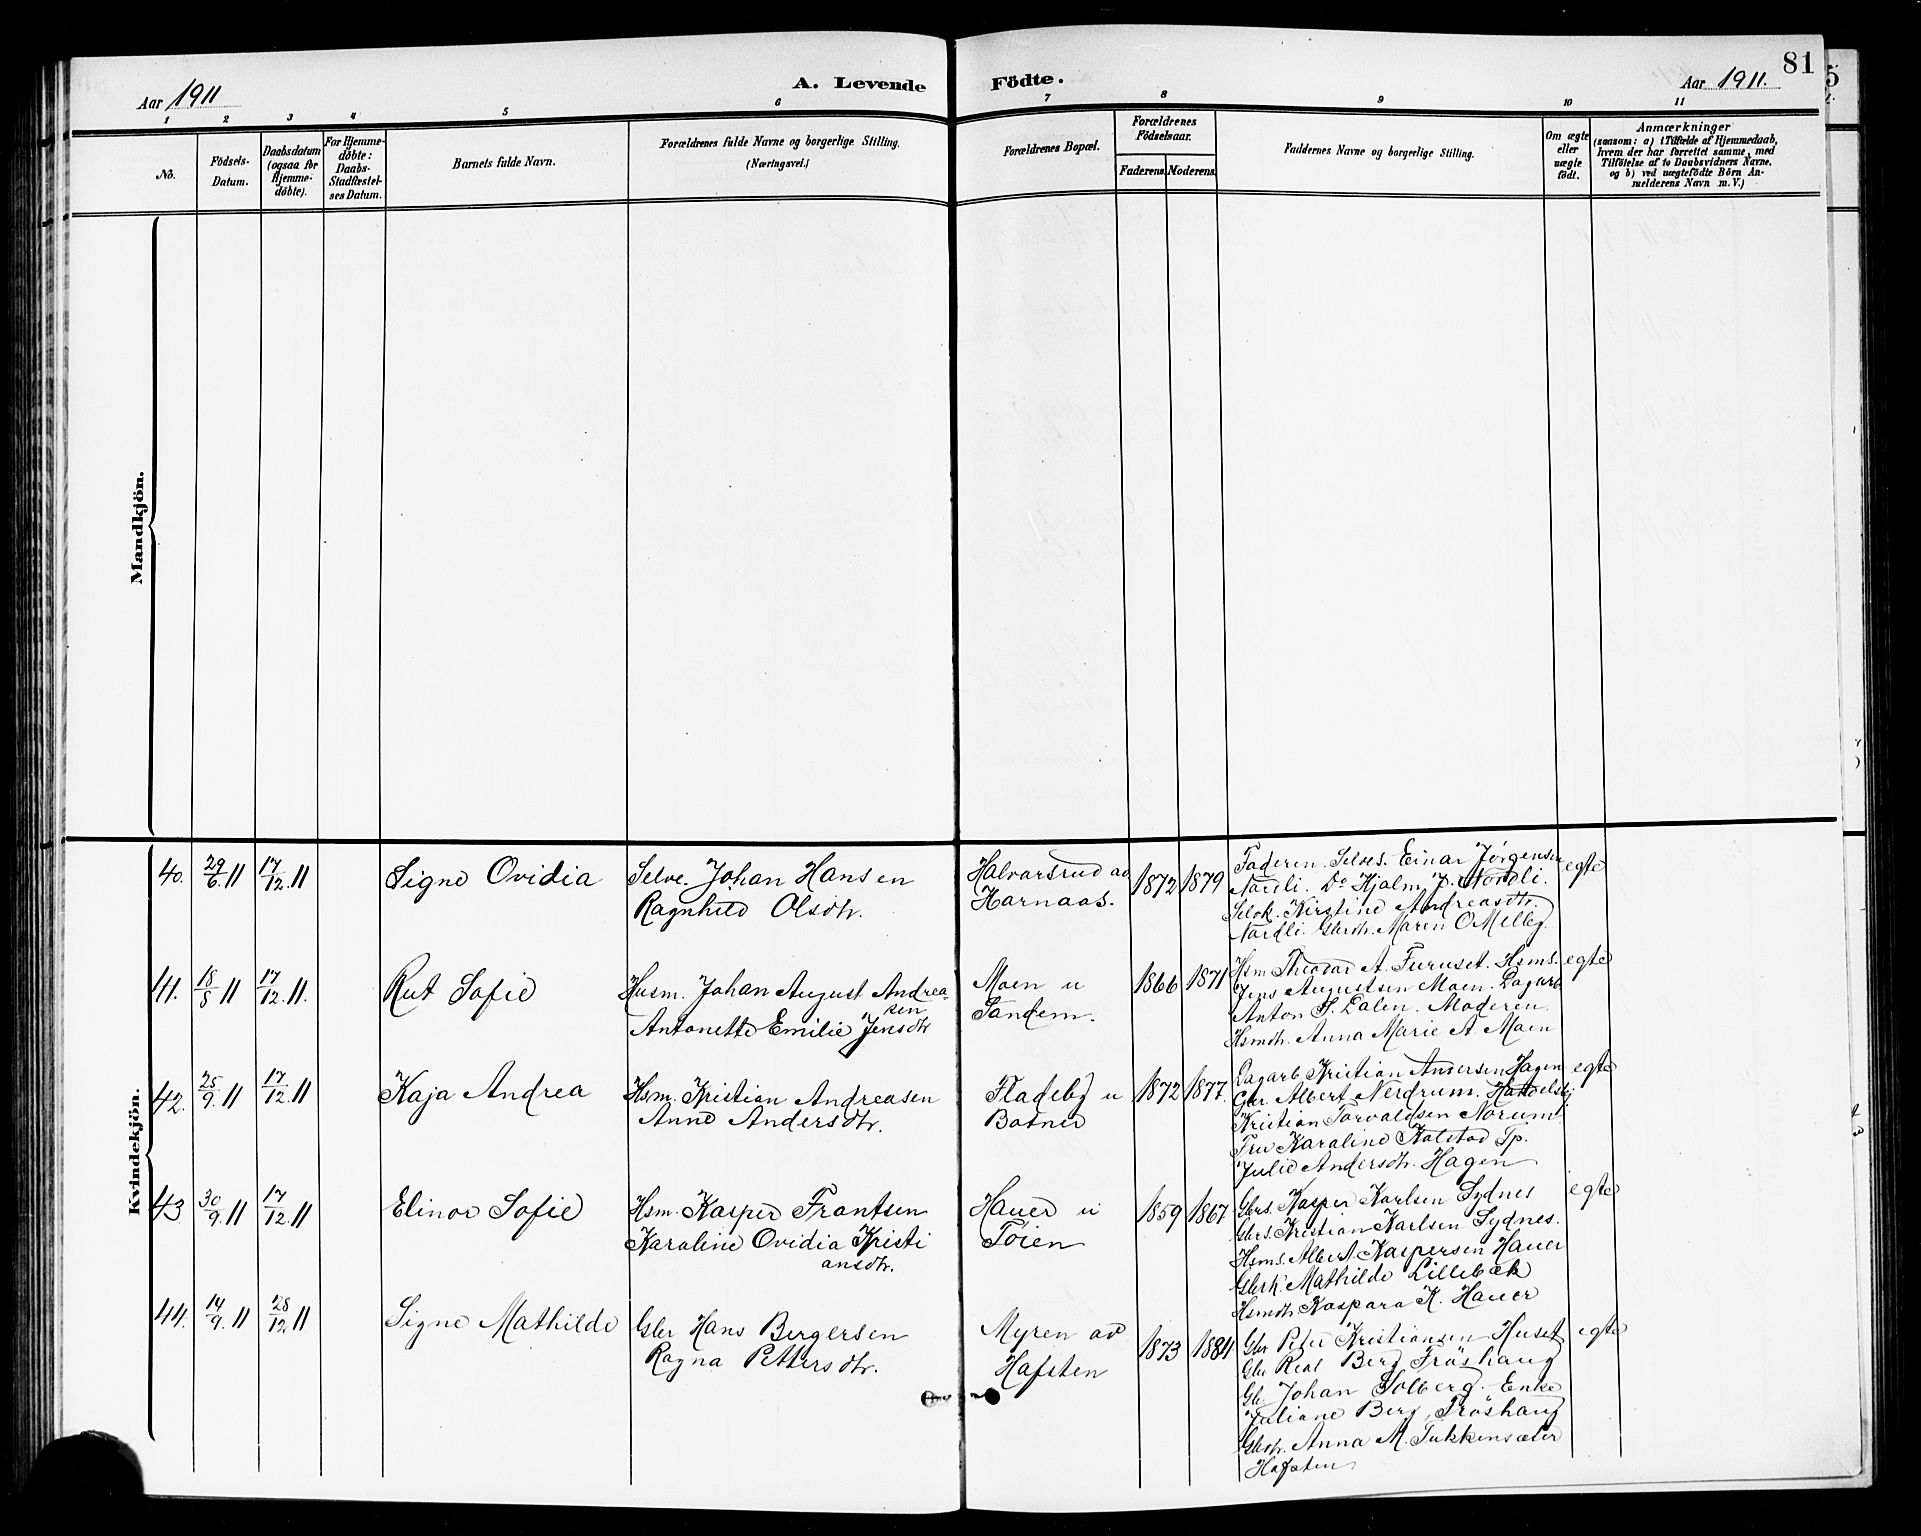 81
Aar 1911
A. Levende
Födte.
Aar 1911.
1 2 3 4 5 6 7 8 9 10 11
No.
Födsels-
Datum.
Daabsdatum
(ogsaa for
Hjemme-
döbte).
For Hjemme-
döbte:
Daabs-
Stadfæstel-
ses Datum.
Barnets fulde Navn.
Forældrenes fulde Navne og borgerlige Stilling.
(Næringsvei.)
Forældrenes Bopæl.
Forældrenes
Födselsaar.
Faderens. Moderens.
Faddernes Navne og borgerlige Stilling.
Om ægte
eller
uægte
födt.
Anmærkninger
(saasom: a) i Tilfælde af Hjemmedaab,
hvem der har forrettet samme, med
Tilföielse af to Daabsvidners Navne,
og b) ved uægtefödte Börn An-
melderens Navn m. V.)
Mandkjön.
Kvindekjön.
40. 29/6. 11 17/12. 11 Signe Ovidia
Selve. Johan Hansen
Ragnhild Olsdtr.
Halvarsrud av
Harnaas.
1872 1879
Faderen. Selves. Einar Jørgensen
Nordli. Do Hjalm. J. Nordli.
Selvk. Kirstine Andreasdtr.
Nordli. Gbrdtr. Maren O Melleg.
egte
41. 18/8 11 17/12. 11. Rut Sofie
Husm. Johan August Andrea-
sen
Antonette Emilie Jensdtr
Moen u
Sandem.
1866 1871
Hsm Theodor A. Furuset. Hsms.
Jens Augustsen Moen. Dagarb
Anton S. Dalen. Moderen.
Hsmdtr. Anna Marie A. Moen
egte
42. 25/9. 11 17/12. 11 Kaja Andrea
Hsm. Kristian Andreasen
Anne Andersdtr.
Fladeby u
Botner
1872 1877.
Dagarb Kristian Andersen Hagen
Gbr. Albert Nerdrum. Handelsbj
Kristian Torvaldsen Norum.
Fru Karoline Kolstad Tp.
Julie Andersdtr. Hagen
egte
43 30/9. 11 17/12. 11 Elinor Sofie
Hsm. Kasper Frantsen
Karoline Ovidia Kristi
ansdtr.
Hauer u
Tøien
1859 1867
Gbrs. Kasper Karlsen Sydnes
Gbrs. Kristian Karlsen Sydnes.
Hsms. Albert Kaspersen Hauer
Gbrk. Mathilde Lillebæk
Hsmdtr. Kaspara K. Hauer
egte
44. 14/9. 11 28/12 11 Signe Mathilde
Gbr Hans Bergersen
Ragna Pettersdtr.
Myren av
Hafsten
1873 1884
Gbr Peter Kristiansen Huset
Gbr Real Berg Frøshaug
Gbr Johan Solberg. Enke
Juliane Berg, Frøshaug
Gbrdtr. Anna M. Tukkensæter
Hafsten
egte